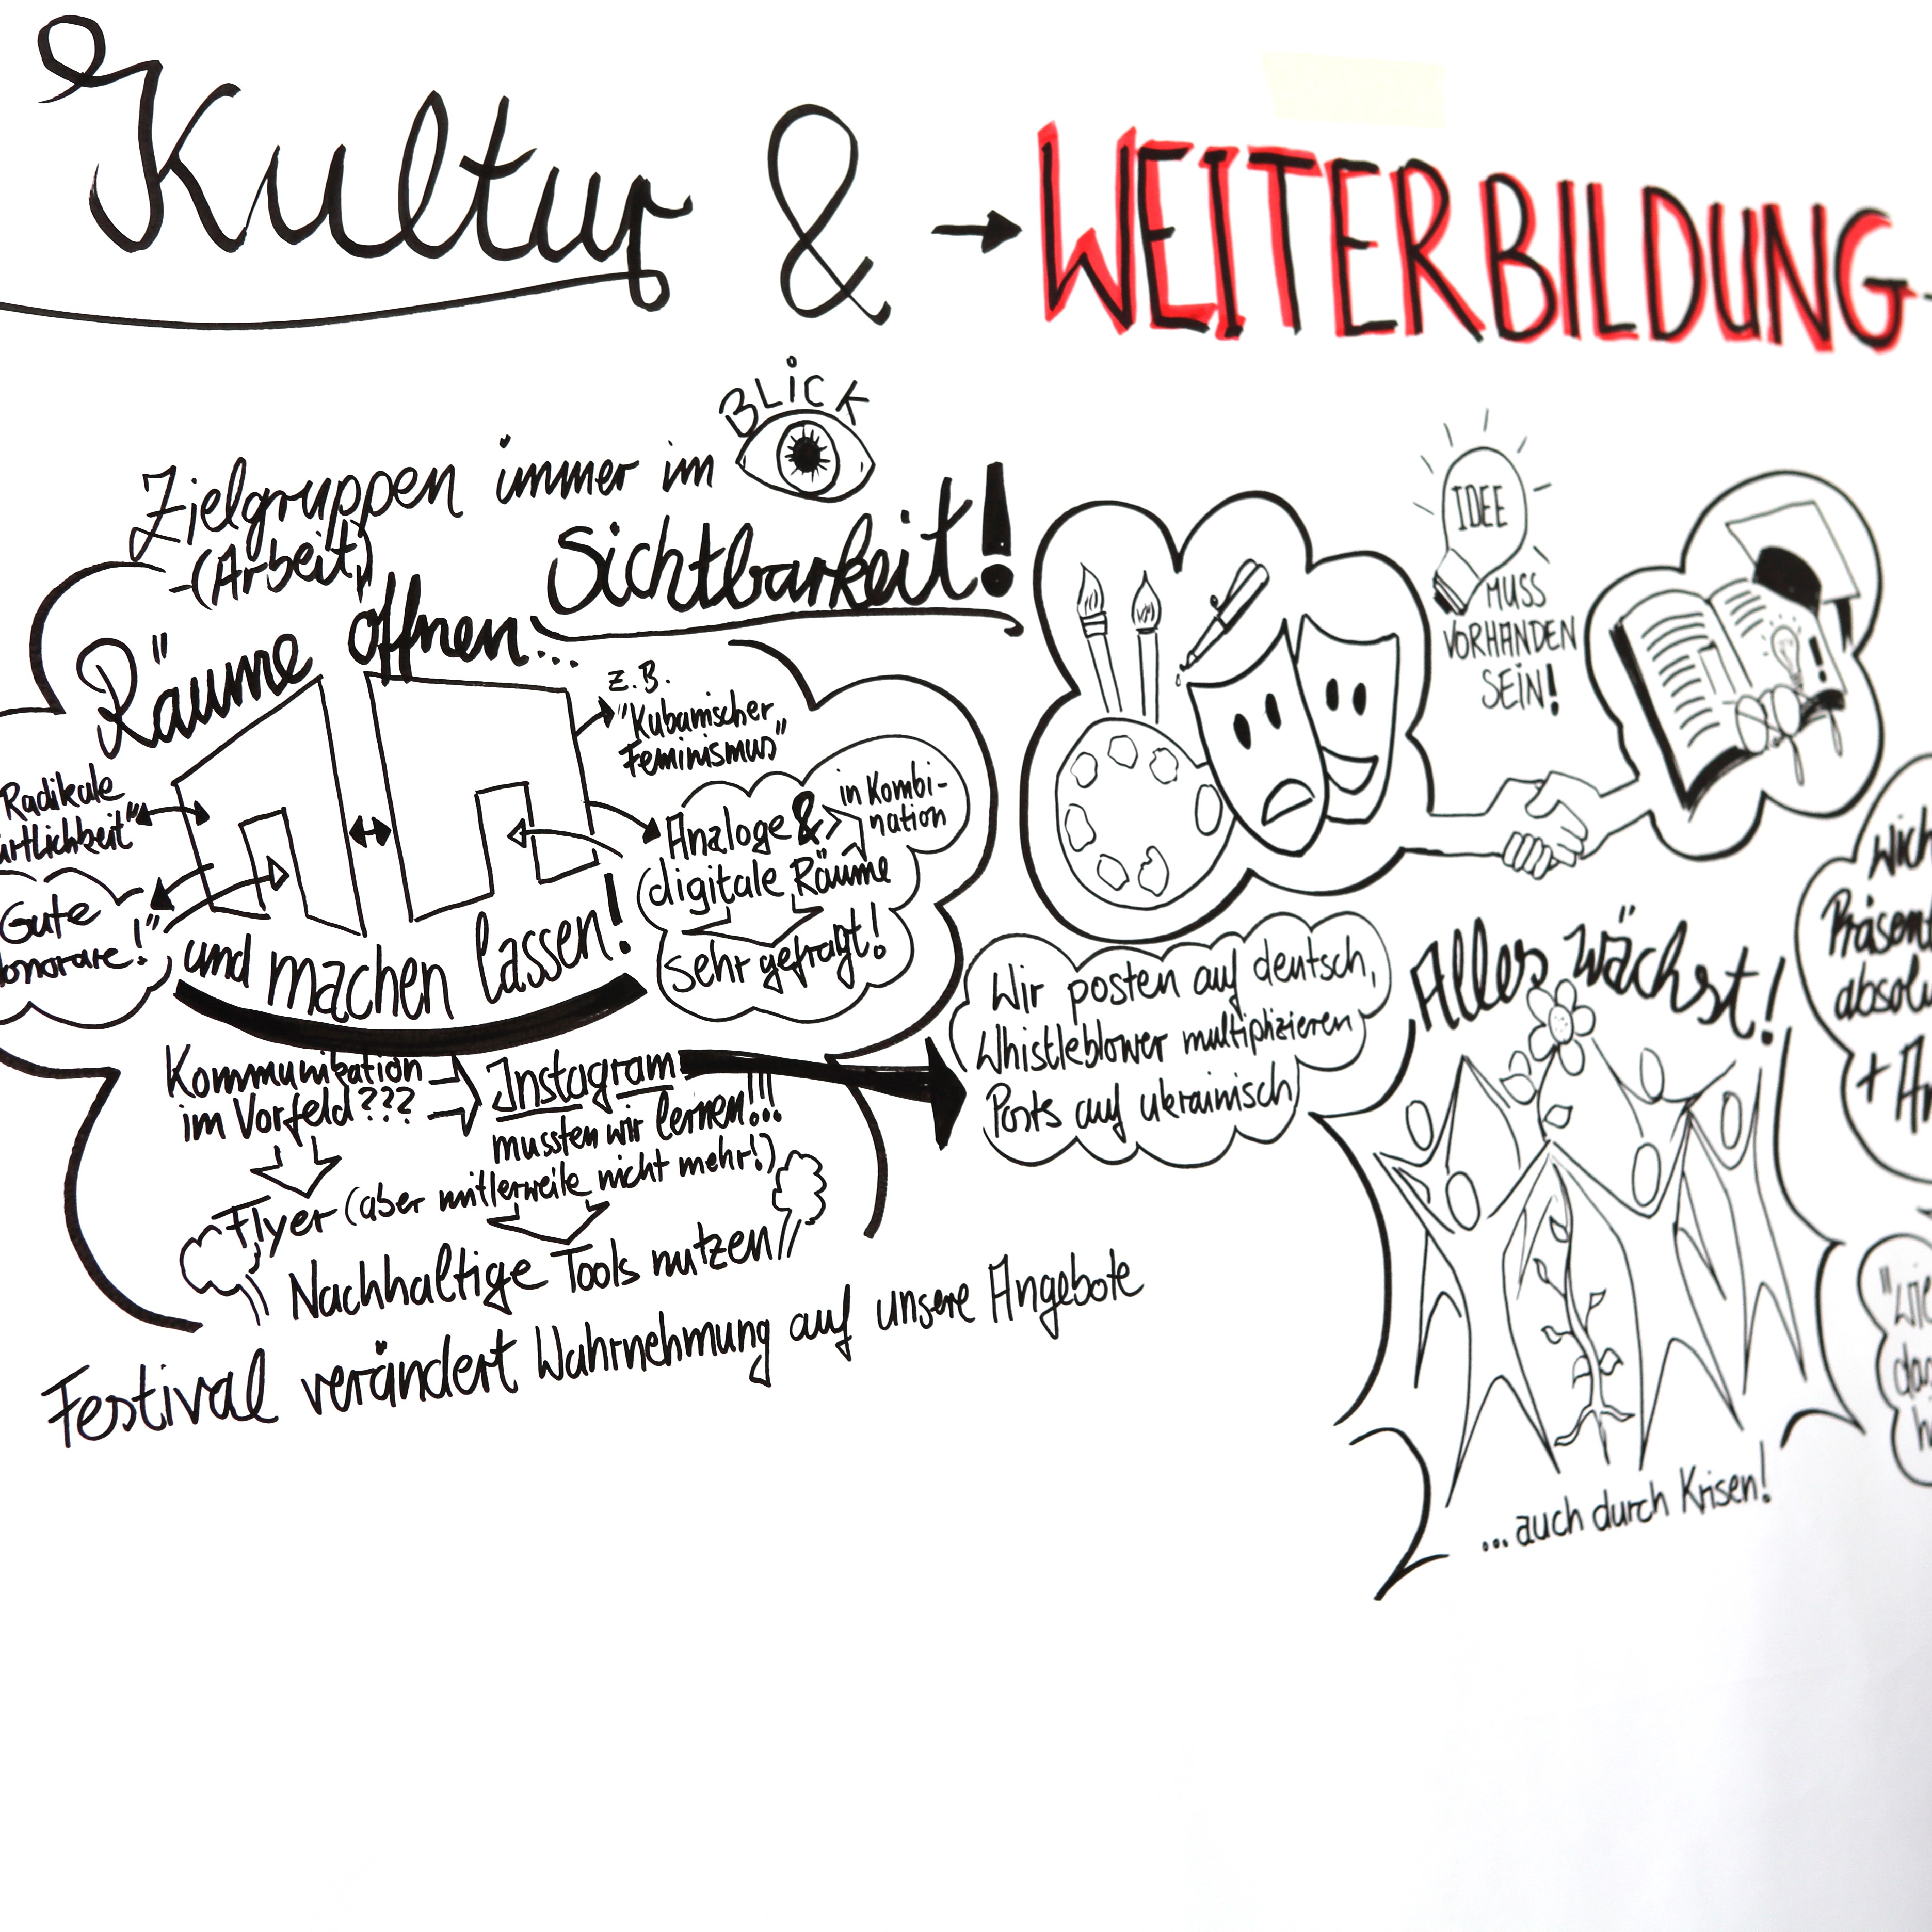 Kultur & → WEITERBILDUNG
Zielgruppen immer im BLiCK
-(Arbeit)
Sichtbarkeit!
Räume öffnen...
z.B.
"Kubanischer
Feminismus"
Radikale
Gute
!"
Analoge &
in Kombi-
nation
digitale Räume
sehr gefragt!
und machen lassen!
Kommunikation
im Vorfeld???
Instagram
mussten wir lernen!!!
Flyer (aber mitlerweile nicht mehr!)
Nachhaltige Tools nutzen
Festival verändert Wahrnehmung auf unsere Angebote
Wir posten auf deutsch,
Whistleblower multiplizieren
Posts auf ukrainisch
IDEE
MUSS
VORHANDEN
SEIN!
Alles wächst!
...auch durch Krisen!